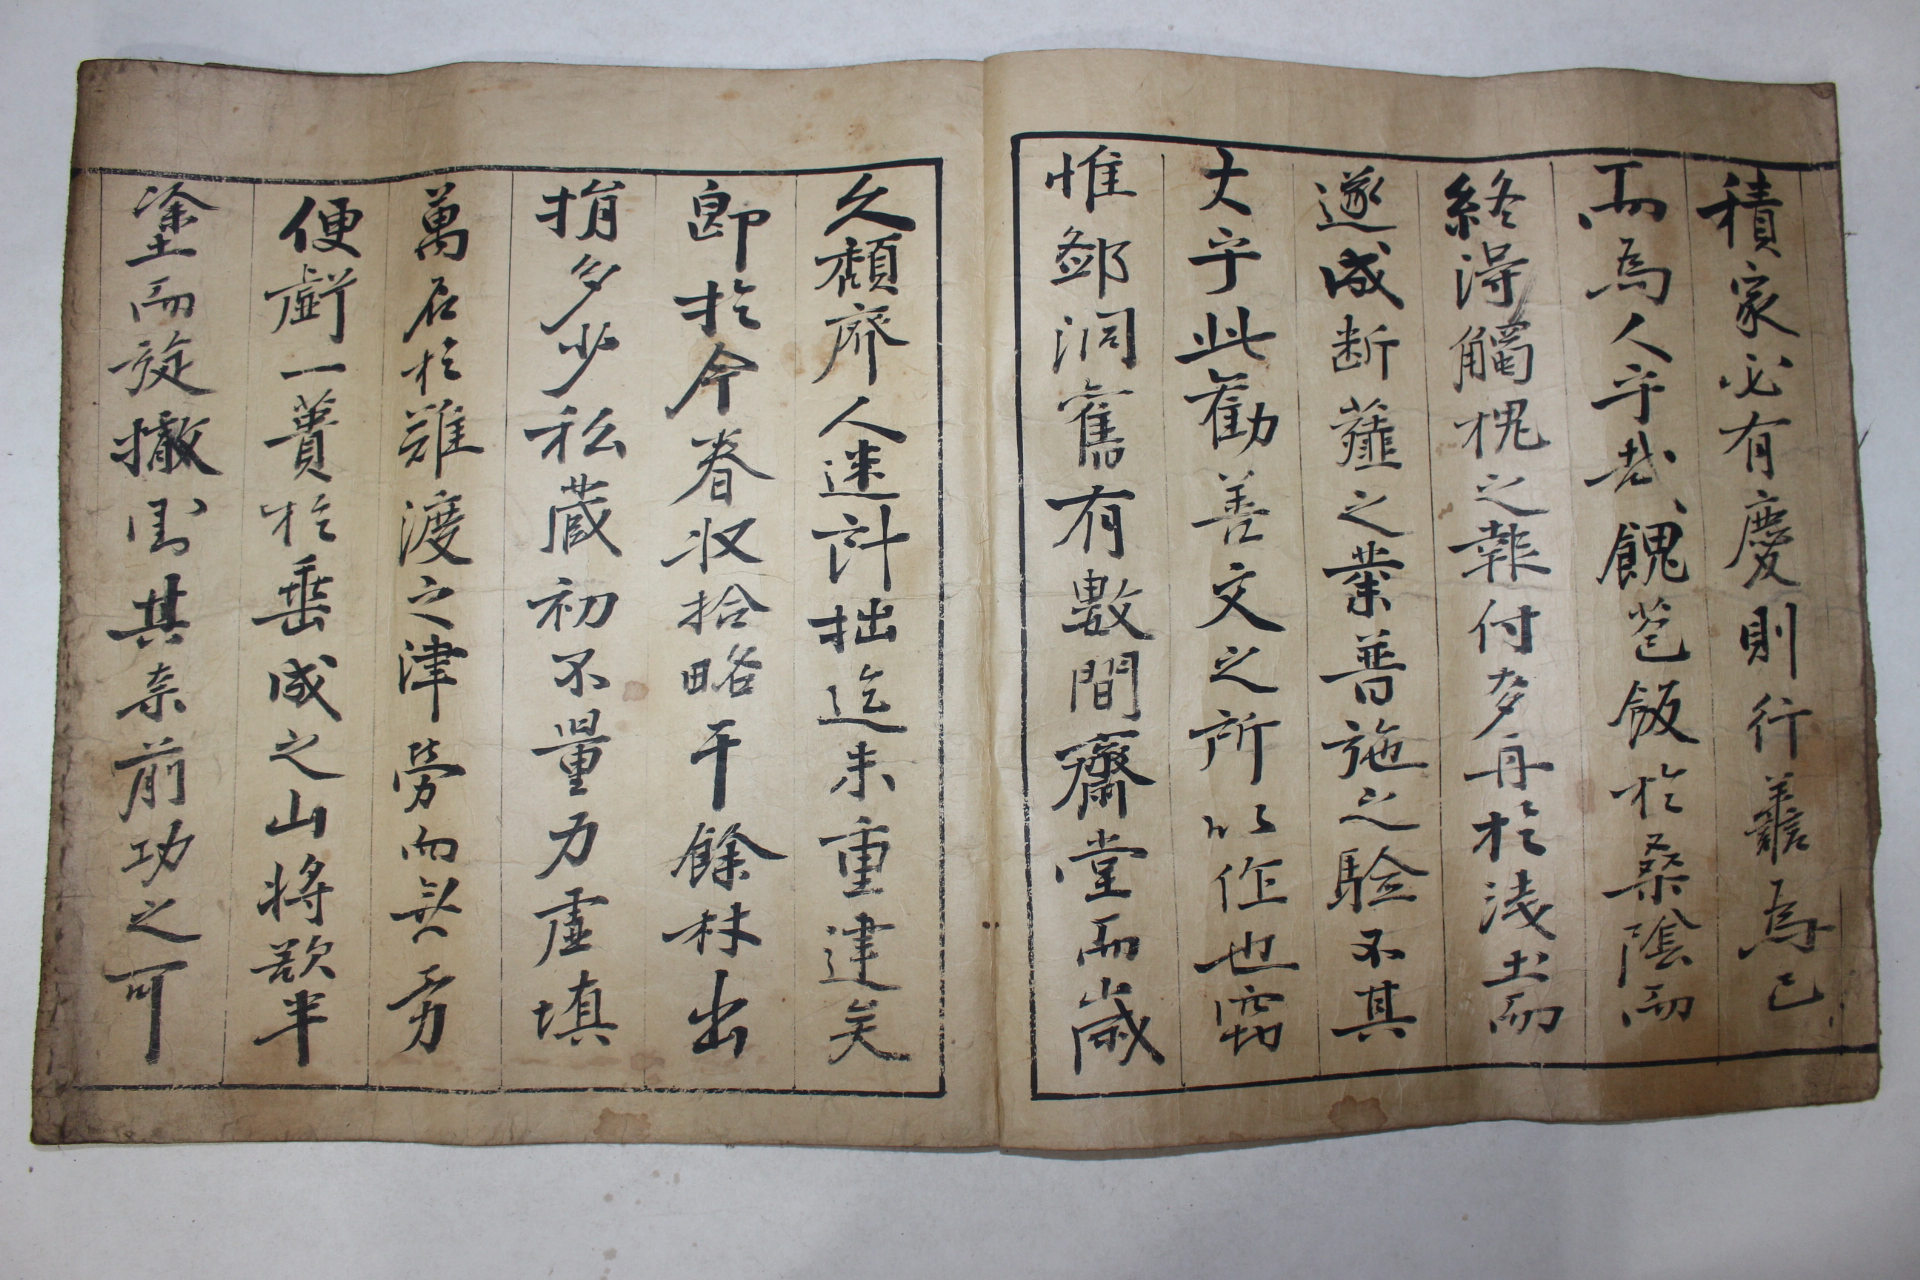 積家必有慶則行譱爲己
而爲人乎哉餽苞飯於桑陰而
終得觸槐之報付麥舟於淺土而
遂成断虀之業普施之驗不其
大乎此勸善文之所以作也窃
惟鄒洞舊有數間齋堂而歲
久頹廢人迷計拙迄未重建矣
即於今春収拾略干餘材出
捐多少私蔵初不量力虛填
萬石於難渡之津勞而無勇
便虧一簣於垂成之山將欲半
塗而旋撤其柰前功之可